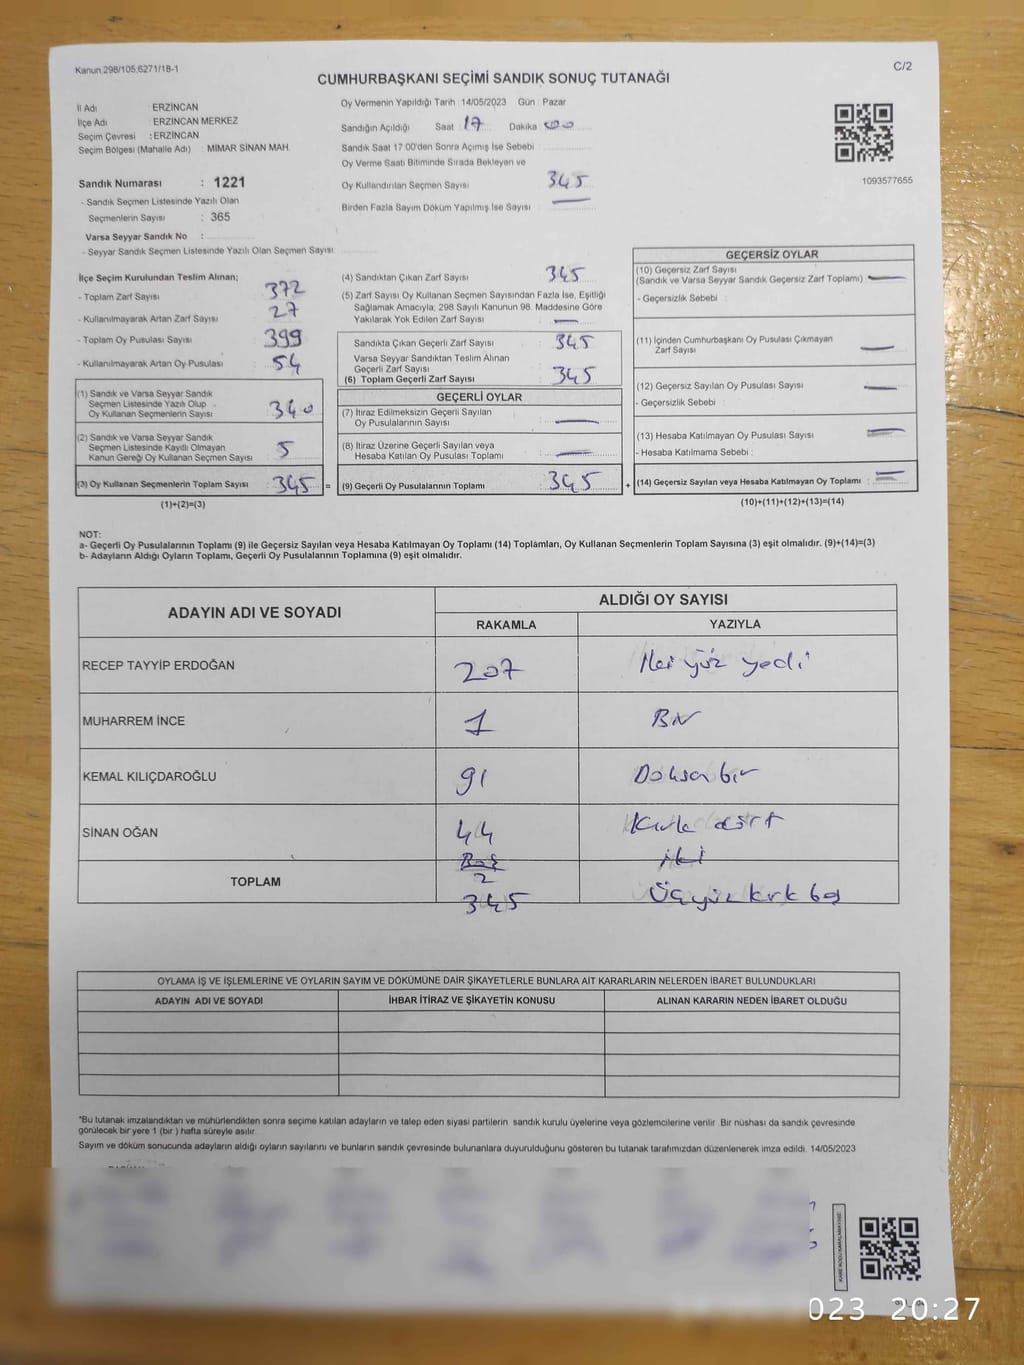 Kanun:298/105;6271/18-1
C/2
CUMHURBAŞKANI SEÇİMİ SANDIK SONUÇ TUTANAĞI
İl Adı : ERZİNCAN
İlçe Adı : ERZİNCAN MERKEZ
Seçim Çevresi : ERZİNCAN
Seçim Bölgesi (Mahalle Adı) : MİMAR SİNAN MAH.
Sandık Numarası : 1221
- Sandık Seçmen Listesinde Yazılı Olan
Seçmenlerin Sayısı : 365
Varsa Seyyar Sandık No :
- Seyyar Sandık Seçmen Listesinde Yazılı Olan Seçmen Sayısı:
Oy Vermenin Yapıldığı Tarih : 14/05/2023 Gün : Pazar
Sandığın Açıldığı Saat 17 Dakika 00
Sandık Saat 17:00'den Sonra Açımış İse Sebebi
Oy Verme Saati Bitiminde Sırada Bekleyen ve
Oy Kullandırılan Seçmen Sayısı 345
Birden Fazla Sayım Döküm Yapılmış İse Sayısı —
1093577655
İlçe Seçim Kurulundan Teslim Alınan;
- Toplam Zarf Sayısı 372
- Kullanılmayarak Artan Zarf Sayısı 27
- Toplam Oy Pusulası Sayısı 399
- Kullanılmayarak Artan Oy Pusulası 54
(1) Sandık ve Varsa Seyyar Sandık
Seçmen Listesinde Yazılı Olup
Oy Kullanan Seçmenlerin Sayısı 340
(2) Sandık ve Varsa Seyyar Sandık
Seçmen Listesinde Kayıtlı Olmayan
Kanun Gereği Oy Kullanan Seçmen Sayısı 5
(3) Oy Kullanan Seçmenlerin Toplam Sayısı 345 =
(1)+(2)=(3)
(4) Sandıktan Çıkan Zarf Sayısı 345
(5) Zarf Sayısı Oy Kullanan Seçmen Sayısından Fazla İse, Eşitliği
Sağlamak Amacıyla, 298 Sayılı Kanunun 98. Maddesine Göre
Yakılarak Yok Edilen Zarf Sayısı —
Sandıkta Çıkan Geçerli Zarf Sayısı 345
Varsa Seyyar Sandıktan Teslim Alınan
Geçerli Zarf Sayısı
(6) Toplam Geçerli Zarf Sayısı 345
GEÇERLİ OYLAR
(7) İtiraz Edilmeksizin Geçerli Sayılan
Oy Pusulalarının Sayısı —
(8) İtiraz Üzerine Geçerli Sayılan veya
Hesaba Katılan Oy Pusulası Toplamı —
(9) Geçerli Oy Pusulalarının Toplamı 345 +
GEÇERSİZ OYLAR
(10) Geçersiz Zarf Sayısı
(Sandık ve Varsa Seyyar Sandık Geçersiz Zarf Toplamı) —
- Geçersizlik Sebebi :
(11) İçinden Cumhurbaşkanı Oy Pusulası Çıkmayan
Zarf Sayısı —
(12) Geçersiz Sayılan Oy Pusulası Sayısı —
- Geçersizlik Sebebi :
(13) Hesaba Katılmayan Oy Pusulası Sayısı —
- Hesaba Katılmama Sebebi :
(14) Geçersiz Sayılan veya Hesaba Katılmayan Oy Toplamı : —
(10)+(11)+(12)+(13)=(14)
NOT:
a- Geçerli Oy Pusulalarının Toplamı (9) ile Geçersiz Sayılan veya Hesaba Katılmayan Oy Toplamı (14) Toplamları, Oy Kullanan Seçmenlerin Toplam Sayısına (3) eşit olmalıdır. (9)+(14)=(3)
b- Adayların Aldığı Oyların Toplamı, Geçerli Oy Pusulalarının Toplamına (9) eşit olmalıdır.
ADAYIN ADI VE SOYADI ALDIĞI OY SAYISI
RAKAMLA YAZIYLA
RECEP TAYYİP ERDOĞAN 207 İki yüz yedi
MUHARREM İNCE 1 Bir
KEMAL KILIÇDAROĞLU 91 Doksan bir
SİNAN OĞAN 44 Kırk dört
Boş iki
2
TOPLAM 345 Üçyüz kırk beş
OYLAMA İŞ VE İŞLEMLERİNE VE OYLARIN SAYIM VE DÖKÜMÜNE DAİR ŞİKAYETLERLE BUNLARA AİT KARARLARIN NELERDEN İBARET BULUNDUKLARI
ADAYIN ADI VE SOYADI İHBAR İTİRAZ VE ŞİKAYETİN KONUSU ALINAN KARARIN NEDEN İBARET OLDUĞU
*Bu tutanak imzalandıktan ve mühürlendikten sonra seçime katılan adayların ve talep eden siyasi partilerin sandık kurulu üyelerine veya gözlemcilerine verilir. Bir nüshası da sandık çevresinde
görülecek bir yere 1 (bir ) hafta süreyle asılır.
Sayım ve döküm sonucunda adayların aldığı oyların sayılarını ve bunların sandık çevresinde bulunanlara duyurulduğunu gösteren bu tutanak tarafımızdan düzenlenerek imza edildi. 14/05/2023
023 20:27